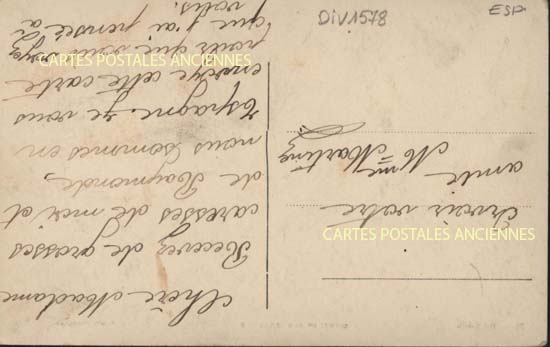 Chère Madame
Recevez de grosses
caresses de moi et
de Raymonde,
nous sommes en
Espagne. Je vous
envoye cette carte
pour que vous voyez
que j'ai pensée à
vous.
à revoir votre
amie
Mme Martinez
DIV1578
ESP.
CARTES POSTALES ANCIENNES
CARTES POSTALES ANCIENNES